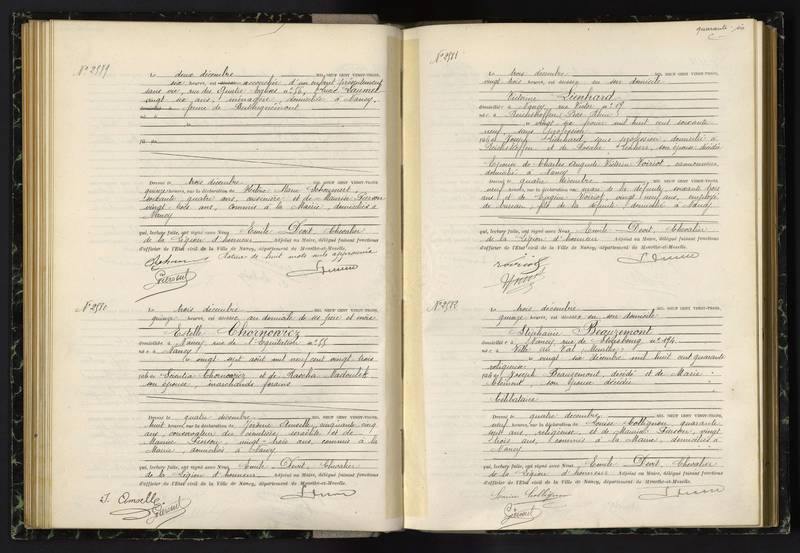 quarante-six
N° 2979
Le deux décembre MIL NEUF CENT VINGT-TROIS,
six heures, est accouchée d'un enfant présentement
sans vie, rue des Quatre Eglises n° 56, Laumel
vingt six ans, ménagère, domiciliée à Nancy,
femme de
Devant le trois décembre MIL NEUF CENT VINGT-TROIS,
quinze heures, sur la déclaration de Marie
soixante quatre ans, et de Maurice Pierson
vingt trois ans, commis à la Mairie, domiciliés à
Nancy
qui, lecture faite, ont signé avec Nous, Emile Devit, Chevalier
de la Légion d'honneur Adjoint au Maire, délégué faisant fonctions
d'officier de l'État civil de la Ville de Nancy, département de Meurthe-et-Moselle.
Rature de huit mots nuls approuvée
N° 2980
Le trois décembre MIL NEUF CENT VINGT-TROIS,
quinze heures, est décédée au domicile de ses père et mère
Estelle Chorncwiez
domiciliée à Nancy rue de l'Equitation n° 55
née à Nancy
le vingt sept août mil neuf cent vingt trois
fille de Chorncwiez et de Raschla
son épouse, marchands forains
Devant le quatre décembre MIL NEUF CENT VINGT-TROIS,
huit heures, sur la déclaration de Jérôme Anselle, cinquante cinq
ans, conservateur du cimetière israélite et de
Maurice Pierson vingt-trois ans, commis à la
Mairie domiciliés à Nancy
qui, lecture faite, ont signé avec Nous, Emile Devit, Chevalier
de la Légion d'honneur Adjoint au Maire, délégué faisant fonctions
d'officier de l'État civil de la Ville de Nancy, département de Meurthe-et-Moselle.
J. Anselle
N° 2981
Le trois décembre MIL NEUF CENT VINGT-TROIS,
vingt trois heures, est décédée en son domicile
Victorine Lienhard
domiciliée à Nancy, rue Victor n° 19
née à Reichshoffen (Bas Rhin)
le vingt six février mil huit cent soixante
neuf, sans profession
fille de Joseph Lienhard, sans profession, domicilié à
Reichshoffen et de Rosalie, son épouse, décédée
Epouse de Charles Auguste Victorin Voiriot,
domicilié à Nancy
Devant le quatre décembre MIL NEUF CENT VINGT-TROIS,
neuf heures, sur la déclaration de mari de la défunte, soixante trois
ans et de Eugène Voiriot, vingt neuf ans, employé
de bureau, fils de la défunte, domiciliés à Nancy
qui, lecture faite, ont signé avec Nous, Emile Devit, Chevalier
de la Légion d'honneur Adjoint au Maire, délégué faisant fonctions
d'officier de l'État civil de la Ville de Nancy, département de Meurthe-et-Moselle.
Voiriot
N° 2982
Le trois décembre MIL NEUF CENT VINGT-TROIS,
quinze heures, est décédée en son domicile
Stéphanie Beauzemont
domiciliée à Nancy rue de Strasbourg n° 194
née à Ville au Val (Meurthe)
le vingt six décembre mil huit cent quarante
religieuse
fille de Joseph Beauzemont, décédé et de Marie
Clément, son épouse décédée
Célibataire
Devant le quatre décembre MIL NEUF CENT VINGT-TROIS,
neuf heures, sur la déclaration de Louise Collignon, quarante
sept ans, religieuse et de Maurice Pierson, vingt
trois ans, commis à la Mairie, domiciliés à
Nancy
qui, lecture faite, ont signé avec Nous, Emile Devit, Chevalier
de la Légion d'honneur Adjoint au Maire, délégué faisant fonctions
d'officier de l'État civil de la Ville de Nancy, département de Meurthe-et-Moselle.
Louise Collignon